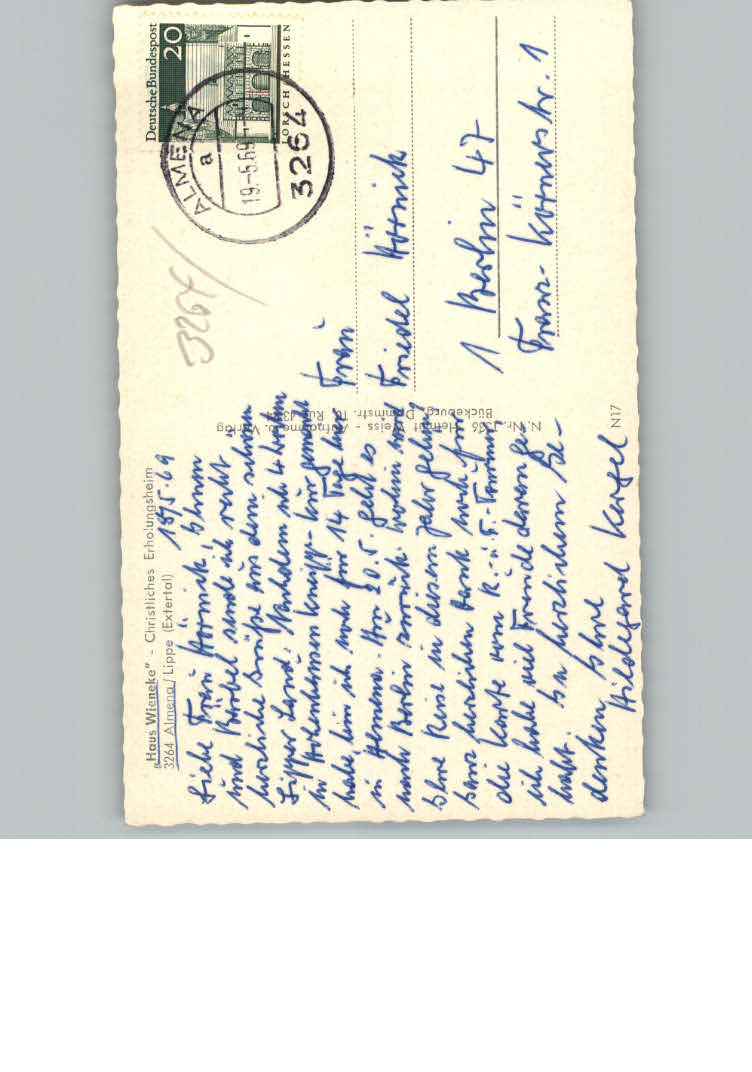 „Haus Wieneke" - Christliches Erholungsheim
3264 Almena/Lippe (Extertal)
18/5.69
Liebe Frau Hörnick, Ihnen
und Bärbel sende ich recht
herzliche Grüße aus dem schönen
Lipper Land. Nachdem ich 4 Wochen
in Kneipp-Kur gemacht
habe, bin ich noch für 14 Tage hier
in Almena. Am 20.5. geht es
nach Berlin zurück. Wohin wird
Ihre Reise in diesem Jahr gehen?
Ganz herzlichen Dank noch für
die Karte vom K.- u. F.-Turnier
ich habe viel Freude daran ge-
habt. In herzlichem Ge-
denken Ihre
Hildegard Kargel
N. Nr. 1336 Helmut Weiss - Aufnahme u. Verlag
Bückeburg, Dammstr. 10, Ruf
N17
Deutsche Bundespost
20
LORSCH HESSEN
ALMENA
a
19.-5.69.-
3264
3264
Frau
Friedel Hörnick
1 Berlin 47
Franz-Körnerstr. 1